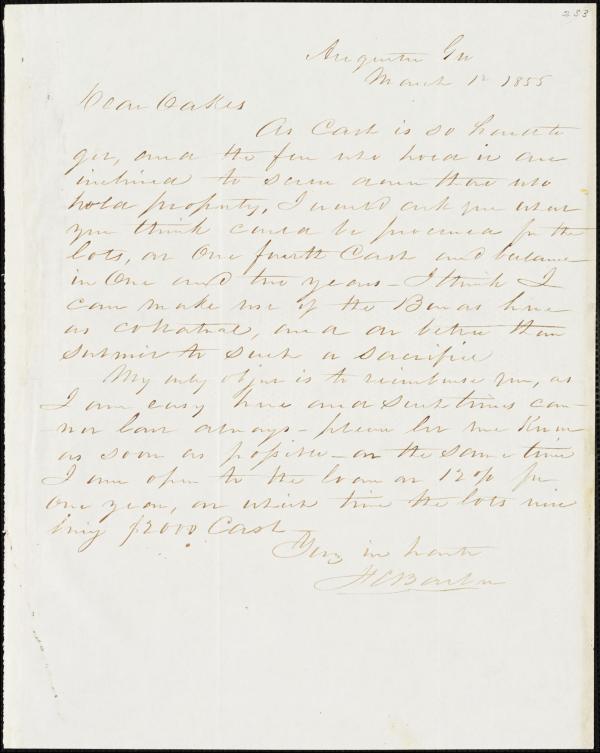 253
Augusta Ga
March 1st 1855
Dear Oakes
As Cash is so hard to
get, and the few who hold it are
inclined to screw down those who
hold property, I would ask you what
you think could be procured for the
lots, at One fourth Cash and balance
in One and two years - I think I
can make use of the Bonds here
as collateral, and do better than
submit to such a sacrifice
My only object is to reimburse you, as
I am easy here and such times can
not last always - please let me Know
as soon as possible - at the same time
I am open to the loan at 12 % for
one year, at which time the lots will
bring $2000 Cash
Yrs in haste
H C Barton